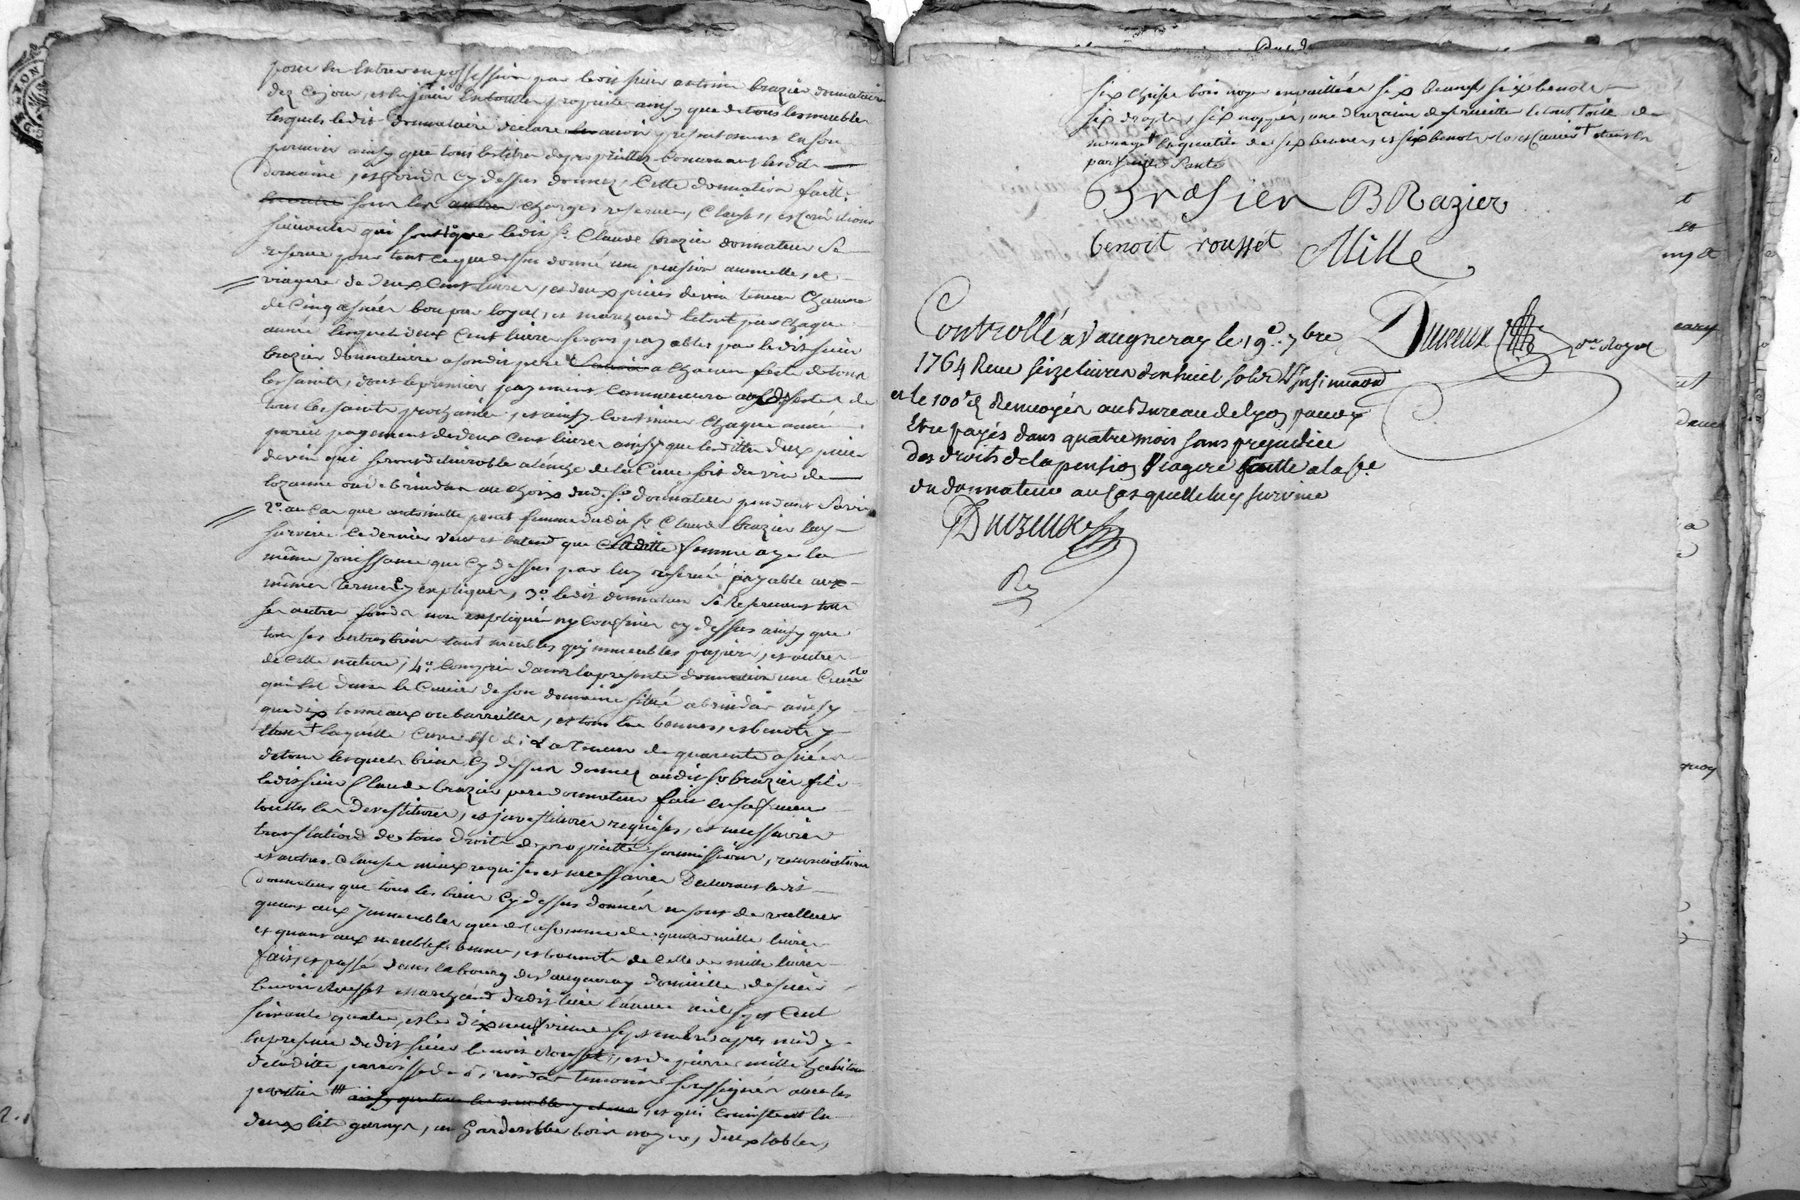 pour en entrer en possession par ledit sieur antoine brazier donnataire
dez ce jour, et en jouir en toutte proprieté ainsy que de tous les meubles
lesquels ledit donnataire declare avoir presentement en son
pouvoir ainsy que tous les titres de proprietté concernant lesdit
domaine, et fonds cy dessus donnez, Cette donnation faitte
sous les charges reserves, Clauses, et conditions
suivantes qui sont que ledit Sr. Claude brazier donnateur se
reserve pour tout ce que dessus donné une pension annuelle, et
viagere de deux Cent livres, et deux pieces de vin teneur chacune
de Cinq asnées bon pur loyal, et marchand le tout par chaque
année lesquels deux Cent livres seront payables par ledit sieur
brazier donnataire a sondit pere a chacune feste de tous
les saints, dont le premier payement commencera aux festes de
tous les saints prochaine, et ainsy continuer chaque année
pareil payement de deux cent livres ainsy que lesdittes deux pieces
de vin qui seront delivrable a la Cuve soit du vin de
lozanne ou de brindas au choix dud. Sr. donnateur pendant sa vie
2o. au cas que antoinette femme dudit Sr Claude brazier luy
survive Ce dernier veut et entend que Saditte femme aye la
même jouissance que cy dessus par luy reservée payable aux
mêmes termes expliquez, 3o. ledit donnateur se reservant tous
ses autres fonds non expliqués ny confinés cy dessus ainsy que
tous ses autres biens tant meubles qu'immeubles papiers, et autres
de cette nature, 4o. Compris dans la presente donnation une Cuve
qui est dans le Cuvier de son domaine situé a brindas ainsy
que dix tonneaux ou barreilles, et tous les bennes, et benots y
etant laquelle Cuve est de la teneur de quarante asnées
de tous lesquels biens cy dessus donnez audit Sr brazier fils
ledit sieur Claude brazier pere donnateur fait en sa faveur
touttes les devestitures, et investitures requises, et necessaires
translations de tous droits de proprietté soumissions, renonciations
et autres Clauses mieux requises et necessaires Declarant ledit
donnateur que tous les biens cy dessus donnés ne sont de valleur
quant aux immeubles que de la somme de quatre mille livres
et quant aux meubles bennes, et benots de Celle de mille livres
fait, et passé dans le bourg de vaugneray domicille de sieur
benoit Rousset marchand dudit lieu l'année mil sept Cent
soixante quatre, et le dixneufvieme septembre apres midy
en presence dudit sieur benoit Rousset, et de pierre mille habitant
de laditte parroisse de brindas temoins soussignés avec les
parties ainsy que tous les meubles y etans, et qui consistent en
deux lits garnys, un garderobbe bois noyer, deux tables,
six chaises bois noyer six bennes six benots
six draps, six nappes, une douzaine de serviettes le tout toile de
menage
par
Brasier BRazier
benoit rousset Mille
Dureux nre Royal
Controllé a Vaugneray le 19e. 7bre
1764 Receu seize livres dix huit sols L'insinuaon
et le 100e d. Renvoyés au Bureau de lyon pour y
Etre payés dans quatre mois sans prejudice
des droits de la pension viagere faitte a la fe.
du donnateur au Cas quelle luy survive
Dureux